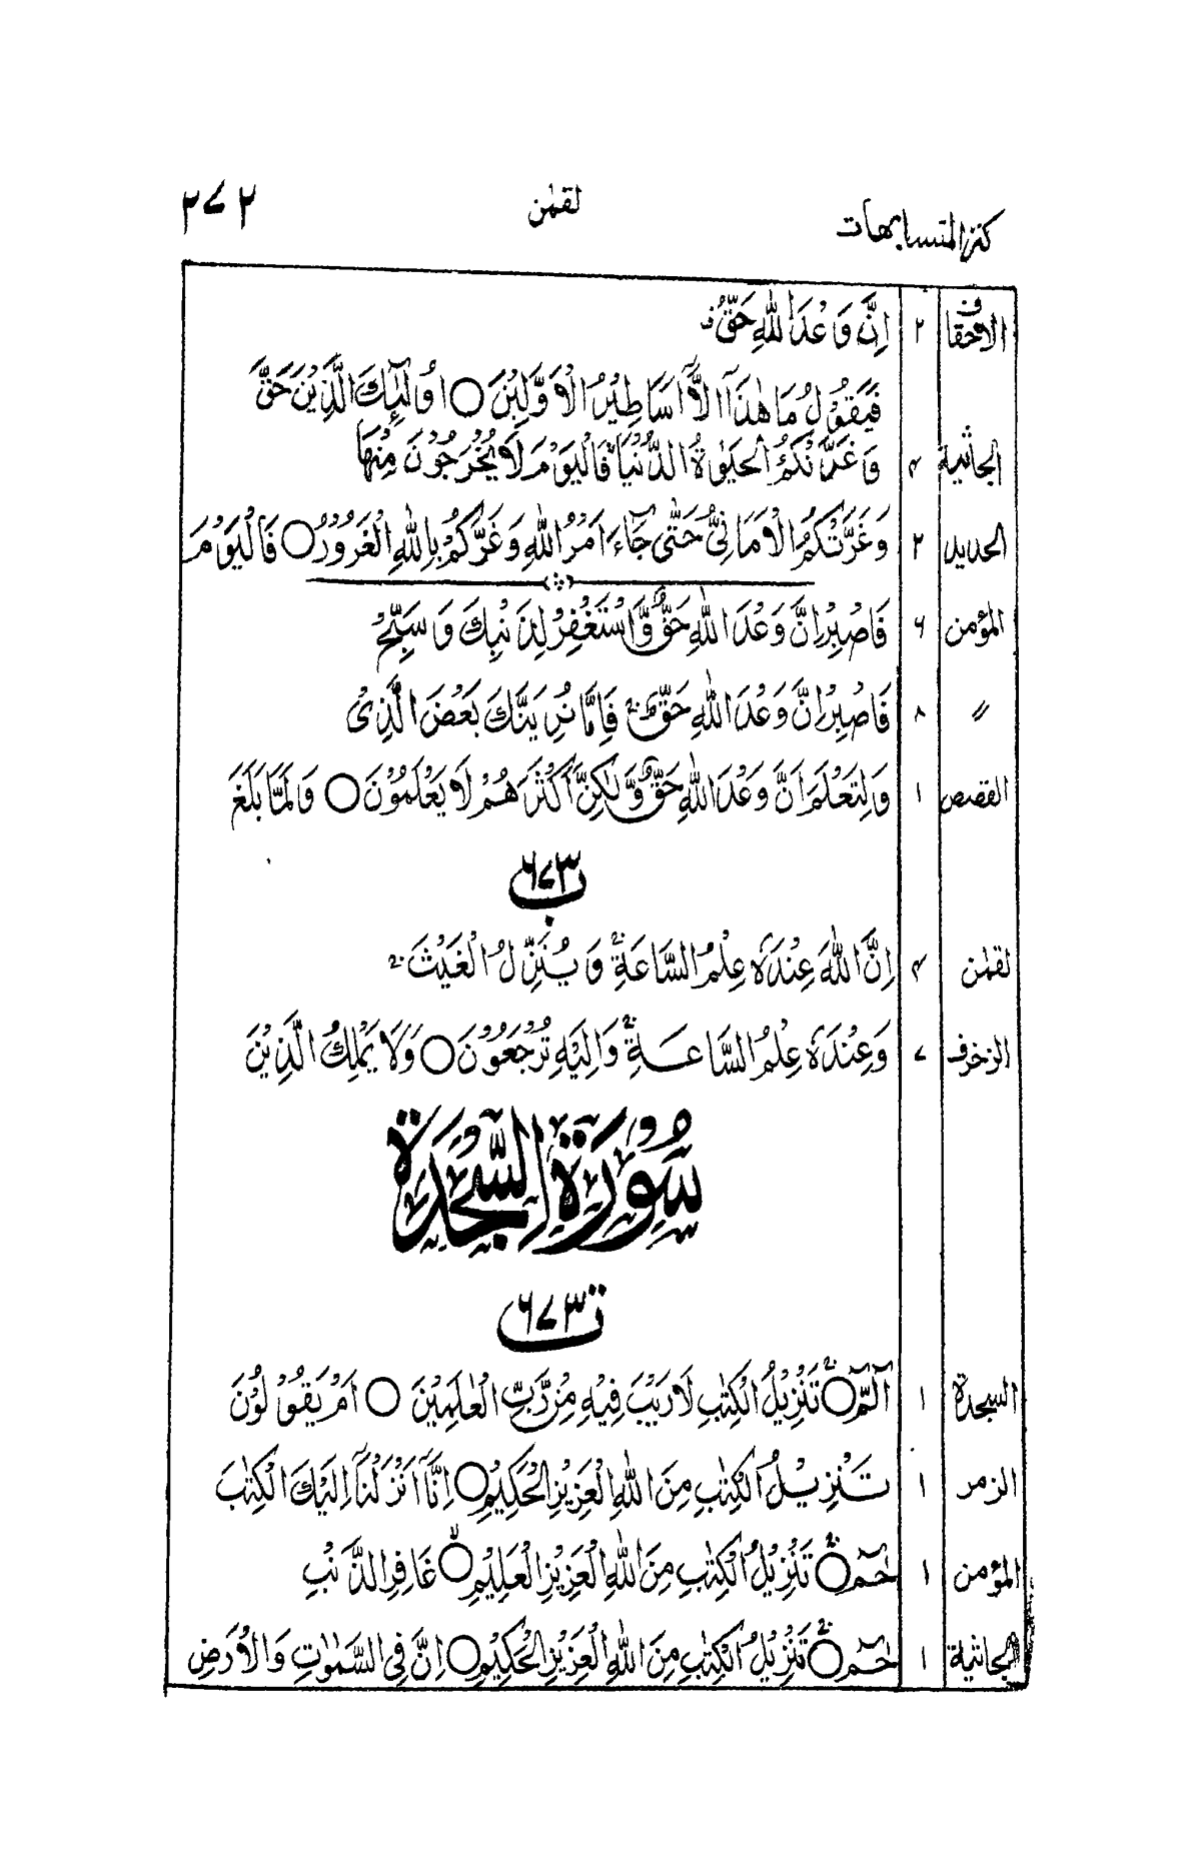 كنز المتشابهات لقمٰن ۲۷۲
الاحقاف ۲ اِنَّ وَعْدَ اللّٰهِ حَقٌّ
فَيَقُوْلُ مَا هٰذَآ اِلَّآ اَسَاطِيْرُ الْاَوَّلِيْنَ ○ اُولٰٓئِكَ الَّذِيْنَ حَقَّ
الجاثية ۴ وَغَرَّتْكُمُ الْحَيٰوةُ الدُّنْيَا فَالْيَوْمَ لَا يُخْرَجُوْنَ مِنْهَا
الحديد ۲ وَغَرَّتْكُمُ الْاَمَانِيُّ حَتّٰى جَآءَ اَمْرُ اللّٰهِ وَغَرَّكُمْ بِاللّٰهِ الْغَرُوْرُ ○ فَالْيَوْمَ
المؤمن ۶ فَاصْبِرْ اِنَّ وَعْدَ اللّٰهِ حَقٌّ وَّاسْتَغْفِرْ لِذَنْۢبِكَ وَسَبِّحْ
〃 ۸ فَاصْبِرْ اِنَّ وَعْدَ اللّٰهِ حَقٌّ ۚ فَاِمَّا نُرِيَنَّكَ بَعْضَ الَّذِيْ
القصص ۱ وَلِتَعْلَمَ اَنَّ وَعْدَ اللّٰهِ حَقٌّ وَّلٰكِنَّ اَكْثَرَهُمْ لَا يَعْلَمُوْنَ ○ وَلَمَّا بَلَغَ
ب ۶۷۳
لقمٰن ۴ اِنَّ اللّٰهَ عِنْدَهٗ عِلْمُ السَّاعَةِ ۚ وَيُنَزِّلُ الْغَيْثَ ۚ
الزخرف ۷ وَعِنْدَهٗ عِلْمُ السَّاعَةِ ۚ وَاِلَيْهِ تُرْجَعُوْنَ ○ وَلَا يَمْلِكُ الَّذِيْنَ
سُوْرَةُ السَّجْدَةِ
ت ۶۷۳
السجدة ۱ الٓمّٓ ○ۚ تَنْزِيْلُ الْكِتٰبِ لَا رَيْبَ فِيْهِ مِنْ رَّبِّ الْعٰلَمِيْنَ ○ اَمْ يَقُوْلُوْنَ
الزمر ۱ تَنْزِيْلُ الْكِتٰبِ مِنَ اللّٰهِ الْعَزِيْزِ الْحَكِيْمِ ○ اِنَّآ اَنْزَلْنَآ اِلَيْكَ الْكِتٰبَ
المؤمن ۱ حٰمٓ ○ۚ تَنْزِيْلُ الْكِتٰبِ مِنَ اللّٰهِ الْعَزِيْزِ الْعَلِيْمِ ○ۙ غَافِرِ الذَّنْۢبِ
الجاثية ۱ حٰمٓ ○ۚ تَنْزِيْلُ الْكِتٰبِ مِنَ اللّٰهِ الْعَزِيْزِ الْحَكِيْمِ ○ اِنَّ فِي السَّمٰوٰتِ وَالْاَرْضِ